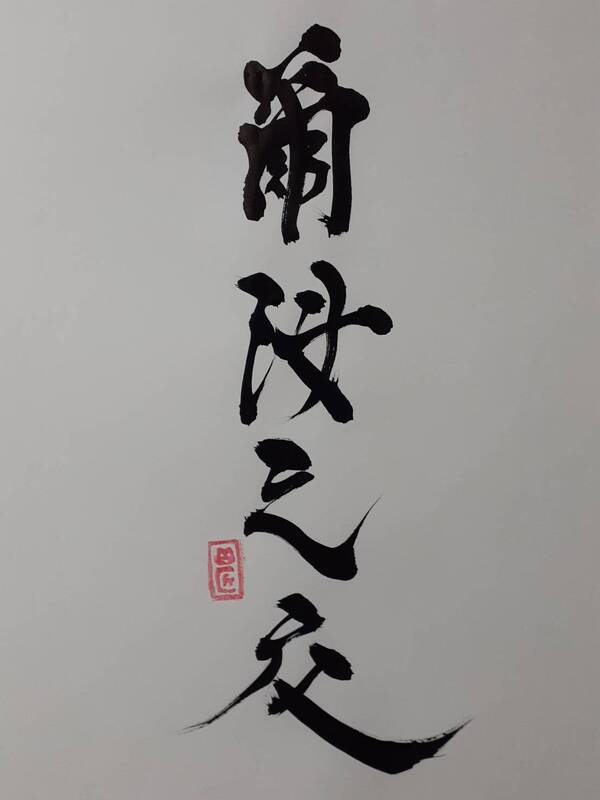 爾汝之交